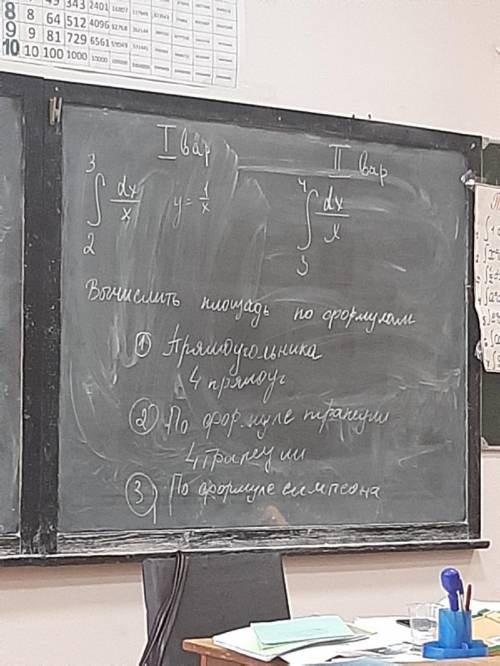 49 343 2401
8 8 64 512 4096
9 9 81 729 6561
10 10 100 1000
I вар
II вар
3 ∫ 2 dx/x y = 1/x
4 ∫ 3 dx/x
Вычислить площадь по формулам
1) Прямоугольника
4 прямоуг
2) По формуле трапеции
4 трапеции
3) По формуле симпсона